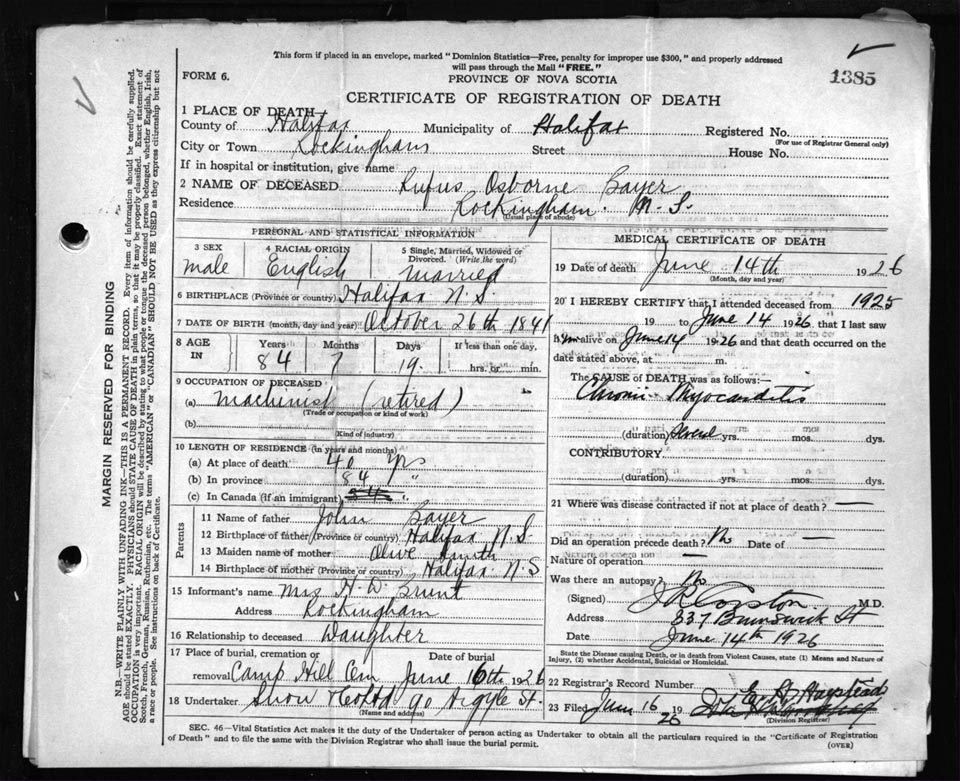 This form if placed in an envelope, marked "Dominion Statistics—Free, penalty for improper use $300," and properly addressed
will pass through the Mail "FREE."
1385
FORM 6.
PROVINCE OF NOVA SCOTIA
CERTIFICATE OF REGISTRATION OF DEATH
1 PLACE OF DEATH—
County of Halifax Municipality of Halifax Registered No.
(For use of Registrar General only)
City or Town Rockingham Street House No.
If in hospital or institution, give name
2 NAME OF DECEASED Rufus Osborne Bayer
Residence Rockingham. N. S.
(Usual place of abode)
PERSONAL AND STATISTICAL INFORMATION
3 SEX 4 RACIAL ORIGIN 5 Single, Married, Widowed or
Divorced. (Write the word)
male English married
6 BIRTHPLACE (Province or country) Halifax N.S.
7 DATE OF BIRTH (month, day and year) October 26th 1841
8 AGE Years Months Days If less than one day,
IN 84 7 19. hrs. or min.
9 OCCUPATION OF DECEASED
(a) machinist (retired)
(Trade or occupation or kind of work)
(b)
(Kind of industry)
10 LENGTH OF RESIDENCE (in years and months)
(a) At place of death 40 yrs
(b) In province 84 "
(c) In Canada (if an immigrant) 84 "
Parents
11 Name of father John Bayer
12 Birthplace of father (Province or country) Halifax N.S.
13 Maiden name of mother Olive Smith
14 Birthplace of mother (Province or country) Halifax N.S
15 Informant's name Mrs H. D. Brunt
Address Rockingham
16 Relationship to deceased Daughter
17 Place of burial, cremation or Date of burial
removal Camp Hill Cem June 16th 1926
18 Undertaker Snow & Co Ltd 90 Argyle St.
(Name and address)
MEDICAL CERTIFICATE OF DEATH
19 Date of death June 14th 1926
(Month, day and year)
20 I HEREBY CERTIFY that I attended deceased from 1925
19 to June 14 1926, that I last saw
him alive on June 14 1926 and that death occurred on the
date stated above, at m.
The CAUSE of DEATH was as follows:—
Chronic Myocarditis
(duration) Several yrs. mos. dys.
CONTRIBUTORY
(duration) yrs. mos. dys.
21 Where was disease contracted if not at place of death? —
Did an operation precede death? No Date of —
Nature of operation —
Was there an autopsy? No
(Signed) M.D.
Address 337 Brunswick St
Date June 14th 1926
State the Disease causing Death, or in death from Violent Causes, state (1) Means and Nature of
Injury, (2) whether Accidental, Suicidal or Homicidal.
22 Registrar's Record Number
23 Filed June 16 1926
(Division Registrar)
SEC. 46—Vital Statistics Act makes it the duty of the Undertaker of person acting as Undertaker to obtain all the particulars required in the "Certificate of Registration
of Death" and to file the same with the Division Registrar who shall issue the burial permit. (OVER)
MARGIN RESERVED FOR BINDING
N.B.—WRITE PLAINLY WITH UNFADING INK—THIS IS A PERMANENT RECORD. Every item of information should be carefully supplied.
AGE should be stated EXACTLY. PHYSICIANS should STATE CAUSE OF DEATH in plain terms, so that it may be properly classified. Exact statement of
OCCUPATION is very important. RACIAL ORIGIN will be described by stating to what people or tongue the deceased person belonged, whether English, Irish,
Scotch, French, German, Russian, Ruthenian, etc. The terms "AMERICAN" or "CANADIAN" SHOULD NOT BE USED as they express citizenship but not
a race or people. See instructions on back of Certificate.